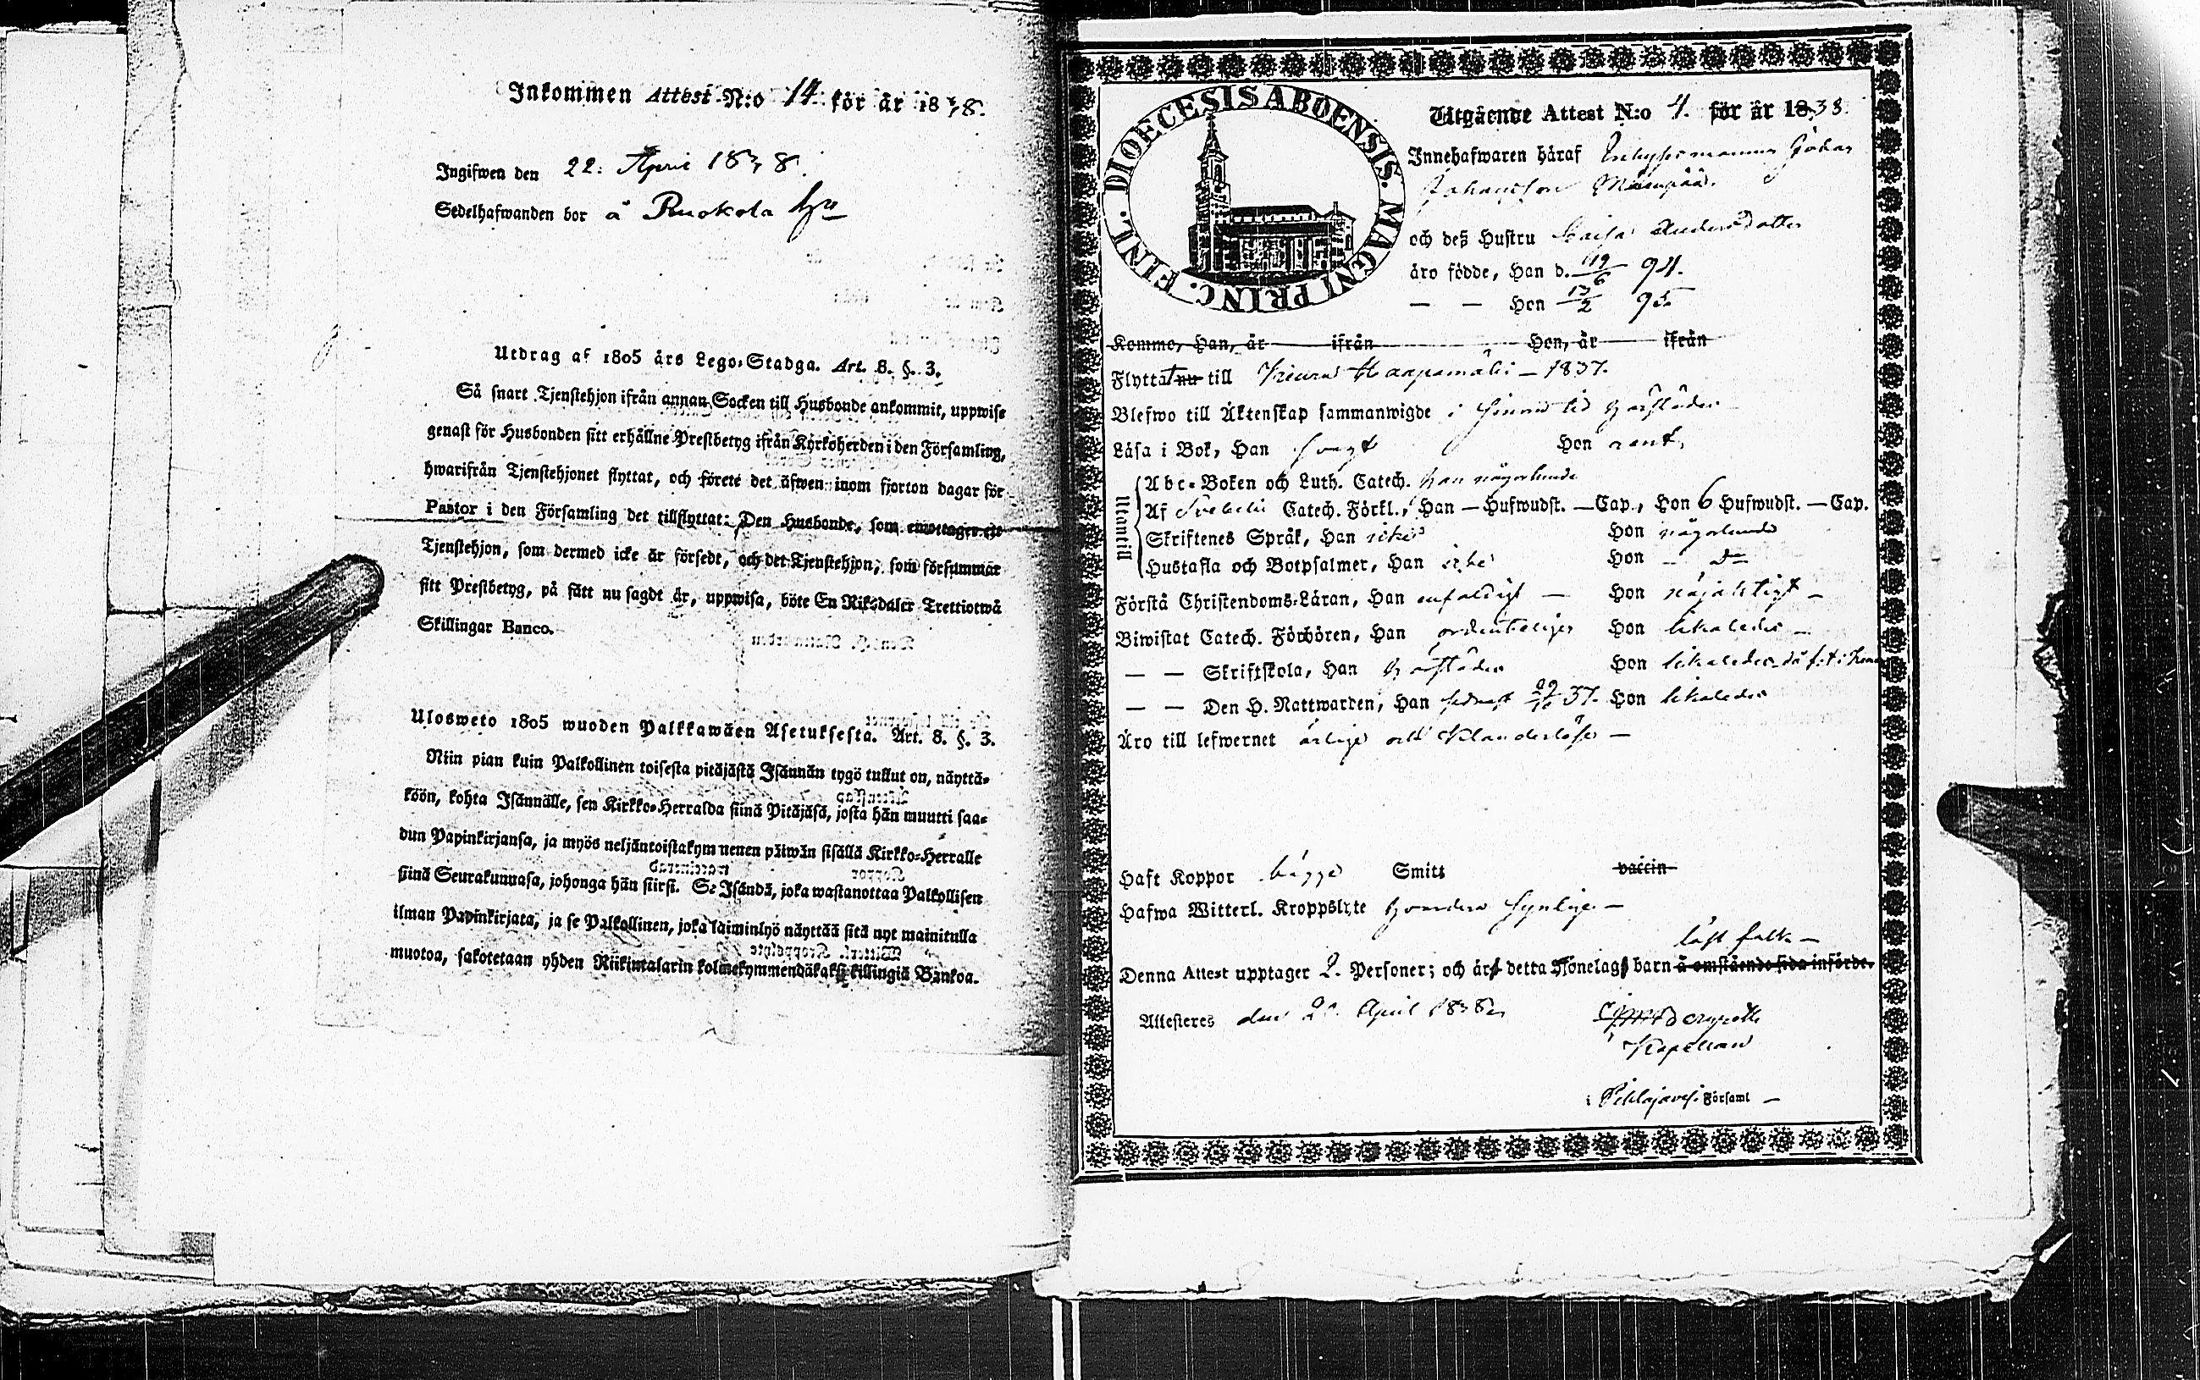 Inkommen Attest N:o 14 för år 1838.
Ingifwen den 22. April 1838.
Sedelhafwanden bor å Ruokola
Utdrag af 1805 års Lego-Stadga. Art. 8. §. 3.
Så snart Tjenstehjon ifrån annan Socken till Husbonde ankommit, uppwise
genast för Husbonden sitt erhållne Prestbetyg ifrån Kyrkoherden i den Församling,
hwarifrån Tjenstehjonet flyttat, och förete det äfwen inom fjorton dagar för
Pastor i den Församling det tillflyttat: Den Husbonde, som emottager ett
Tjenstehjon, som dermed icke är försedt, och det Tjenstehjon, som försummar
sitt Prestbetyg, på sätt nu sagdt är, uppwisa, böte En Riksdaler Trettiotwå
Skillingar Banco.
Ulosweto 1805 wuoden Palkkawäen Asetuksesta. Art. 8. §. 3.
Niin pian kuin Palkollinen toisesta pitäjästä Isännän tygö tullut on, näyttä-
köön, kohta Isännälle, sen Kirkko-Herralda siinä Pitäjäsä, josta hän muutti saa-
dun Papinkirjansa, ja myös neljäntoistakymmenen päiwän sisällä Kirkko-Herralle
siinä Seurakunnasa, johonga hän siirsi. Se Isändä, joka wastanottaa Palkollisen
ilman Papinkirjata, ja se Palkollinen, joka laiminlyö näyttää sitä nyt mainitulla
muotoa, sakotetaan yhden Riikintalarin kolmekymmendäkaksi killingiä Bankoa.
DIOECESIS ABOENSIS. MAGNI PRINC. FINL.
Utgående Attest N:o 4. för år 1838.
Innehafwaren häraf Inhysesmannen Göran
Johansson Mäenpää.
och deß Hustru Caisa Andersdotter
äro födde, Han d. 19/6 94.
— — Hon 13/2 95
Kommo, Han, år ifrån Hon, år ifrån
Flyttat nu till Haapamäki — 1837.
Blefwo till Äktenskap sammanwigde i sinom tid härstädes
Läsa i Bok, Han swagt Hon rent,
Utantill
Abc-Boken och Luth. Catech. han någorlunda
Af Svebelii Catech. Förkl., Han — Hufwudst. — Cap., Hon 6 Hufwudst. — Cap.
Skriftenes Språk, Han icke Hon någorlunda
Hustafla och Botpsalmer, Han icke Hon — d —
Förstå Christendoms-Läran, Han enfaldigt — Hon nöjaktigt —
Biwistat Catech. Förhören, Han ordenteligen Hon likaledes —
— — Skriftskola, Han härstädes Hon likaledes
— — Den H. Nattwarden, Han sednast 37. Hon likaledes
Äro till lefwernet ärlige och klanderlöse —
Haft Koppor bägge Smitt vaccin
Hafwa Witterl. Kroppslyte
löst folk —
Denna Attest upptager 2. Personer; och är detta Hionelag barn å omstående sida införde.
Attesteres den April 1838,
Kapellan
i Pihlajavesi Församl —